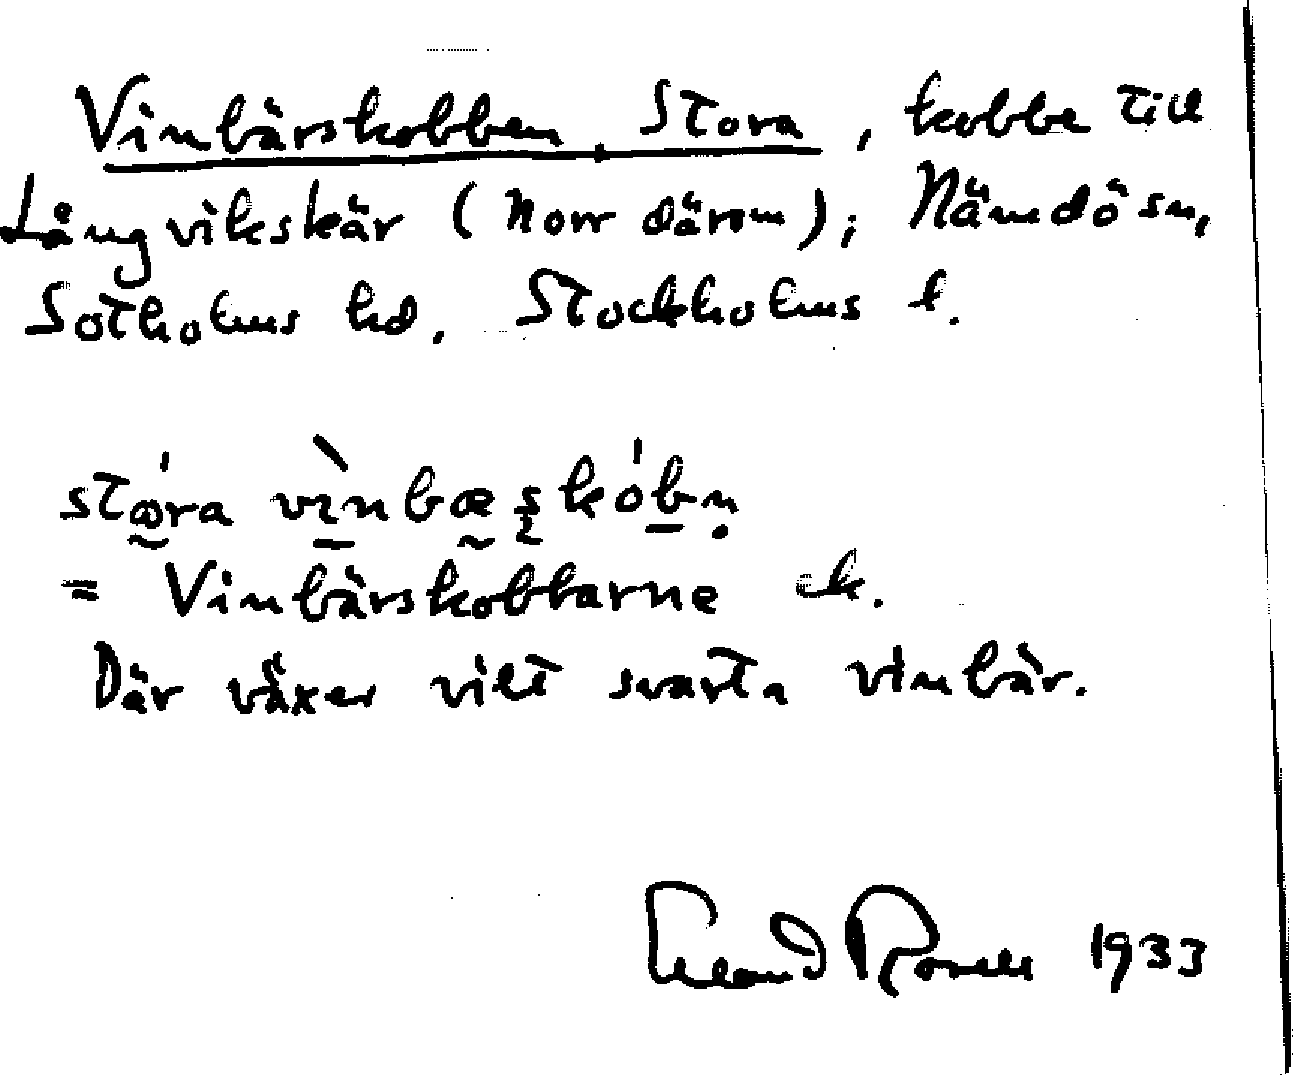 Vinbärskobben, Stora, kobbe till
Långvikskär (norr därom); Nämdö sn,
Sotholms hd. Stockholms l.
stó̰ra vɪ̀nbæ̰ʂkób̲n̥
= Vinbärskobbarne ek.
Där växer vilt svarta vinbär.
Erland Rosell 1933